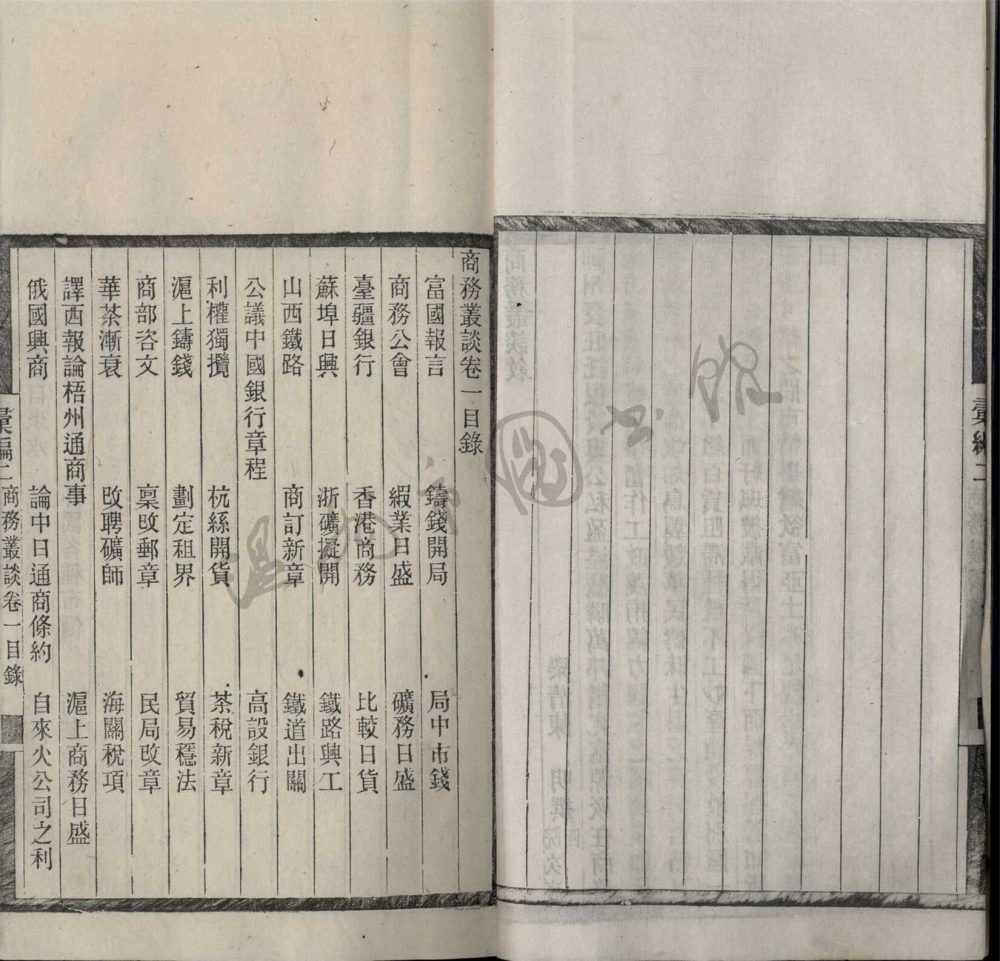 商務叢談卷一目錄
富國報言　鑄錢開局　局中市錢
商務公會　緞業日盛　礦務日盛
臺疆銀行　香港商務　比較日貨
蘇埠日興　浙礦擬開　鐵路興工
山西鐵路　商訂新章　鐵道出關
公議中國銀行章程　高設銀行
利權獨攬　杭絲開貨　茶稅新章
滬上鑄錢　劃定租界　貿易穩法
商部咨文　稟改郵章　民局改章
華茶漸衰　改聘礦師　海關稅項
譯西報論梧州通商事　滬上商務日盛
俄國興商　論中日通商條約　自來火公司之利
彙編二　商務叢談卷一目錄